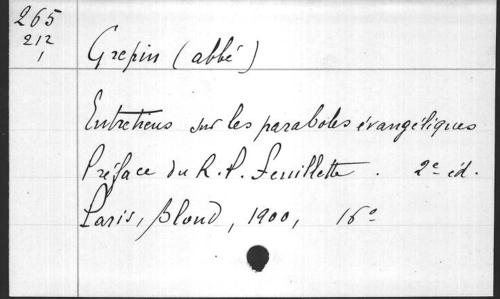 265
212
1
Grepin (abbé)
Entretiens sur les paraboles évangéliques
Préface du R. P. Feuillette. 2e éd.
Paris, Bloud, 1900, 16o